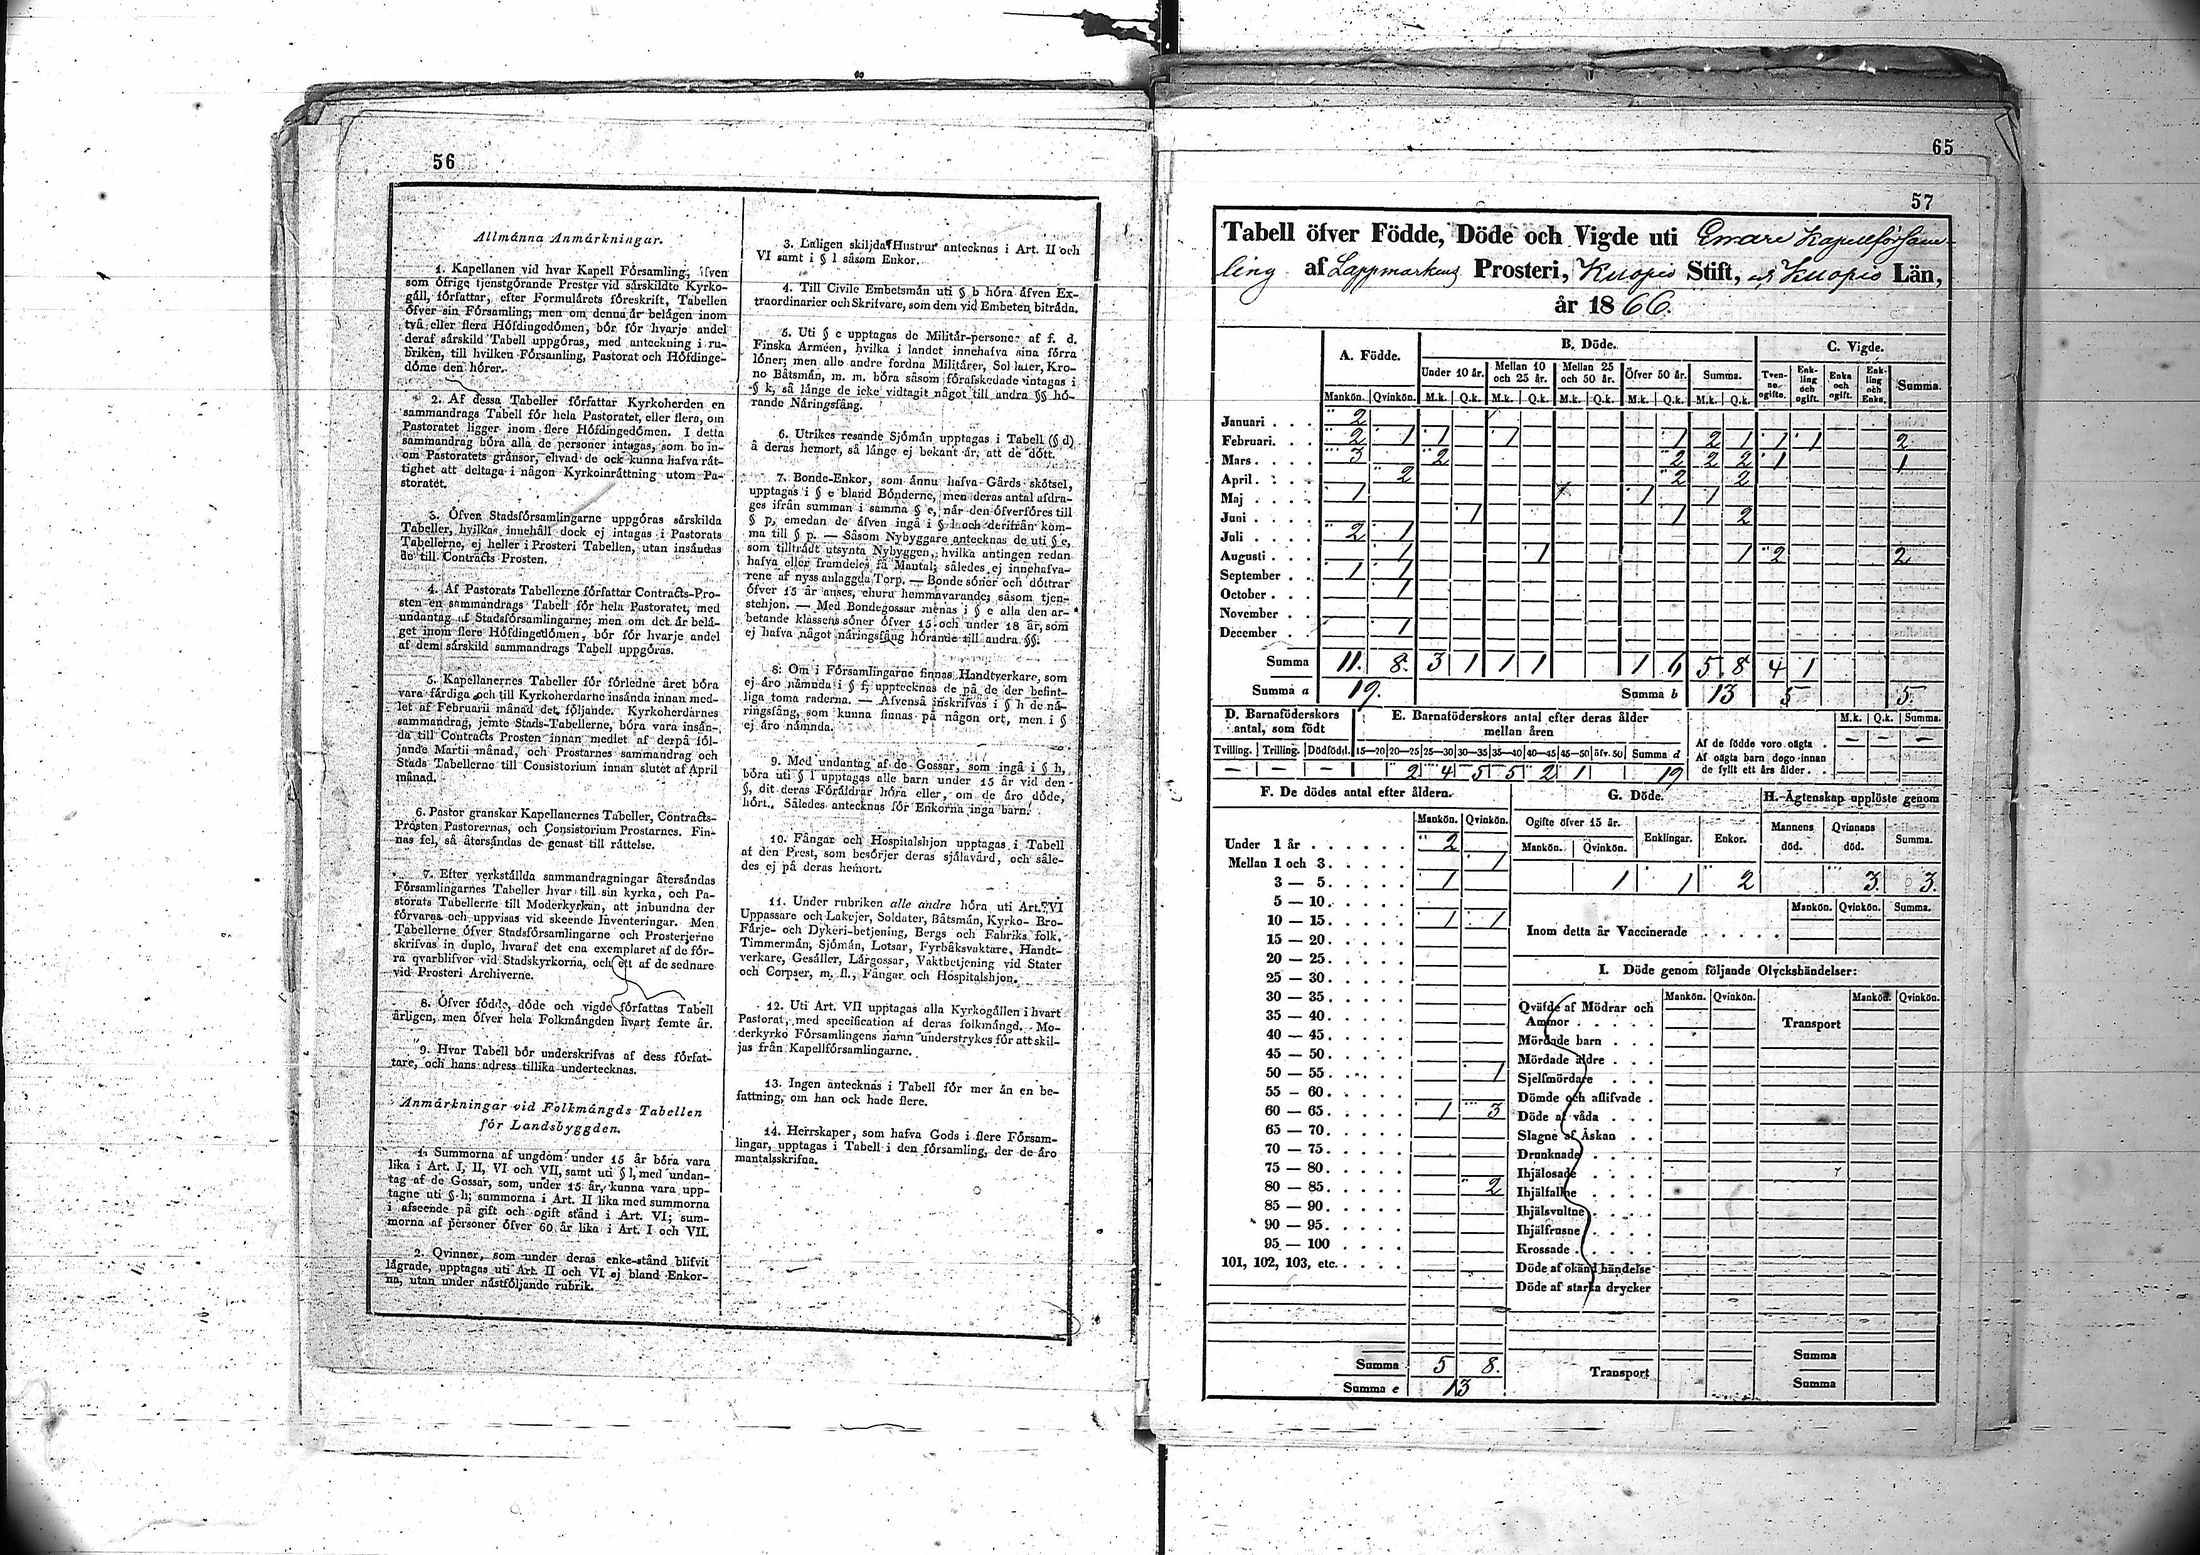 56
Allmånna Anmårkningar.
1. Kapellanen vid hvar Kapell Fórsamling, ífven
som ófrige tjenstgórande Prester vid sårskildte Kyrko-
gåll, fórfattar, efter Formulårets fóreskrift, Tabellen
ófver sin Fórsamling; men om denna år belågen inom
två eller flera Hófdingedómen, bór fór hvarje andel
deraf sårskild Tabell uppgóras, med anteckning i ru-
briken, till hvilken Fórsamling, Pastorat och Hófdinge-
dóme den hórer.
2. Af dessa Tabeller fórfattar Kyrkoherden en
sammandrags Tabell fór hela Pastoratet, eller flera, om
Pastoratet ligger inom flere Hófdingedómen. I detta
sammandrag bóra alla de personer intagas, som bo in-
om Pastoratets grånsor, ehvad de ock kunna hafva råt-
tighet att deltaga i någon Kyrkoinråttning utom Pa-
storatet.
3. Ófven Stadsfórsamlingarne uppgóras sårskilda
Tabeller, hvilkas innehåll dock ej intages i Pastorats
Tabellerne, ej heller i Prosteri Tabellen, utan insåndas
de till Contracts Prosten.
4. Af Pastorats Tabellerne fórfattar Contracts-Pro-
sten en sammandrags Tabell fór hela Pastoratet, med
undantag af Stadsfórsamlingarne; men om det år belå-
get inom flere Hófdingedómen, bór fór hvarje andel
af dem sårskild sammandrags Tabell uppgóras.
5. Kapellanernes Tabeller fór fórledne året bóra
vara fårdiga och till Kyrkoherdarne insånda innan med-
let af Februarii månad det fóljande. Kyrkoherdarnes
sammandrag, jemte Stads-Tabellerne, bóra vara insån-
da till Contracts Prosten innan medlet af derpå fól-
jande Martii månad, och Prostarnes sammandrag och
Stads Tabellerne till Consistorium innan slutet af April
månad.
6. Pastor granskar Kapellanernes Tabeller, Contracts-
Prosten Pastorernas, och Consistorium Prostarnes. Fin-
nas fel, så återsåndas de genast till råttelse.
7. Efter verkstållda sammandragningar återsåndas
Fórsamlingarnes Tabeller hvar till sin kyrka, och Pa-
storats Tabellerne till Moderkyrkan, att inbundna der
fórvaras och uppvisas vid skeende Inventeringar. Men
Tabellerne ófver Stadsfórsamlingarne och Prosterierne
skrifvas in duplo, hvaraf det ena exemplaret af de fór-
ra qvarblifvor vid Stadskyrkorna, och ett af de sednare
vid Prosteri Archiverne.
8. Ófver fódde, dóde och vigde fórfattas Tabell
årligen, men ófver hela Folkmångden hvart femte år.
9. Hvar Tabell bór underskrifvas af dess fórfat-
tare, och hans adress tillika undertecknas.
Anmårkningar vid Folkmångds Tabellen
fór Landsbyggden.
1. Summorna af ungdom under 15 år bóra vara
lika i Art. I, II, VI och VII, samt uti § l, med undan-
tag af de Gossar, som, under 15 år, kunna vara upp-
tagne uti § h; summorna i Art. II lika med summorna
i afseende på gift och ogift stånd i Art. VI; sum-
morna af personer ófver 60 år lika i Art. I och VII.
2. Qvinnor, som under deras enke-stånd blifvit
lågrade, upptagas uti Art. II och VI ej bland Enkor-
na, utan under nåstfóljande rubrik.
3. Laligen skiljda Hustrur antecknas i Art. II och
VI samt i § l såsom Enkor.
4. Till Civile Embetsmån uti § b hóra åfven Ex-
traordinarier och Skrifvare, som dem vid Embeten bitråda.
5. Uti § c upptagas de Militår-personer af f. d.
Finska Arméen, hvilka i landet innehafva sina fórra
lóner; men alle andre fordna Militårer, Soldater, Kro-
no Båtsmån, m. m. bóra såsom fórafskedade intagas i
§ k, så långe de icke vidtagit något till andra §§ hó-
rande Nåringsfång.
6. Utrikes resande Sjómån upptagas i Tabell (§ d)
å deras hemort, så långe ej bekant år, att de dótt.
7. Bonde-Enkor, som ånnu hafva Gårds skótsel,
upptagas i § e bland Bónderne, men deras antal afdra-
ges ifrån summan i samma § e, når den ófverfóres till
§ p, emedan de åfven ingå i § l och derifrån kom-
ma till § p. — Såsom Nybyggare antecknas de uti § e,
som tilltrådt utsynta Nybyggen, hvilka antingen redan
hafva eller framdeles få Mantal; således ej innehafva-
rene af nyss anlaggda Torp. — Bonde sóner och dóttrar
ófver 15 år anses, ehuru hemmavarande, såsom tjen-
stehjon. — Med Bondegossar menas i § e alla den ar-
betande klassens sóner ófver 15 och under 18 år, som
ej hafva något nåringsfång hórande till andra §§.
8. Om i Fórsamlingarne finnas Handtverkare, som
ej åro nåmnda i § f, upptecknas de på de der befint-
liga toma raderna. — Åfvenså inskrifvas i § h de nå-
ringsfång, som kunna finnas på någon ort, men i §
ej åro nåmnda.
9. Med undantag af de Gossar, som ingå i § h,
bóra uti § l upptagas alle barn under 15 år vid den
§, dit deras Fóråldrar hóra eller, om de åro dóde,
hórt. Således antecknas fór Enkorna inga barn.
10. Fångar och Hospitalshjon upptagas i Tabell
af den Prest, som besórjer deras sjålavård, och såle-
des ej på deras hemort.
11. Under rubriken alle andre hóra uti Art. VI
Uppassare och Lakejer, Soldater, Båtsmån, Kyrko- Bro-
Fårje- och Dykeri-betjening, Bergs och Fabriks folk,
Timmermån, Sjómån, Lotsar, Fyrbåksvaktare, Handt-
verkare, Gesåller, Lårgossar, Vaktbetjening vid Stater
och Corpser, m. fl., Fångar och Hospitalshjon.
12. Uti Art. VII upptagas alla Kyrkogållen i hvart
Pastorat, med specification af deras folkmångd. Mo-
derkyrko Fórsamlingens namn understrykes fór att skil-
jas från Kapellfórsamlingarne.
13. Ingen antecknas i Tabell fór mer ån en be-
fattning, om han ock hade flere.
14. Herrskaper, som hafva Gods i flere Fórsam-
lingar, upptagas i Tabell i den fórsamling, der de åro
mantalsskrifna.
65
57
Tabell öfver Födde, Döde och Vigde uti Enare Kapellförsam-
ling af Lappmarkens Prosteri, Kuopio Stift, och Kuopio Län,
år 1866.
A. Födde. B. Döde. C. Vigde.
Under 10 år. Mellan 10 och 25 år. Mellan 25 och 50 år. Öfver 50 år. Summa. Tven-ne ogifte. Enk-ling och ogift. Enka och ogift. Enk-ling och Enka. Summa.
Mankön. Qvinkön. M.k. Q.k. M.k. Q.k. M.k. Q.k. M.k. Q.k. M.k. Q.k.
Januari . . . 2
Februari. . . 2 1 1 1 1 2 1 1 1 2
Mars . . . . 3 2 2 2 2 1 1
April . . . 2 2 2
Maj . . . . 1 1 1
Juni . . . . 1 1 2
Juli . . . . 2 1
Augusti . . . 1 1 1 2 2
September . . 1 1
October . . . 1
November . .
December . . 1
Summa 11. 8. 3 1 1 1 1 6 5 8 4 1
Summa a 19. Summa b 13 5 5.
D. Barnaföderskors antal, som födt
Tvilling. Trilling. Dödfödd.
— — —
E. Barnaföderskors antal efter deras ålder mellan åren
15—20 20—25 25—30 30—35 35—40 40—45 45—50 öfv. 50 Summa d
2 4 5 5 2 1 19
M.k. Q.k. Summa.
Af de födde voro oägta . — — —
Af oägta barn dogo innan
de fyllt ett års ålder. . .
F. De dödes antal efter åldern.
Mankön. Qvinkön.
Under 1 år . . . . . . 2
Mellan 1 och 3. . . . . 1
3 — 5. . . . . 1
5 — 10. . . . .
10 — 15. . . . . 1 1
15 — 20. . . . .
20 — 25. . . . .
25 — 30. . . . .
30 — 35. . . . .
35 — 40. . . . .
40 — 45. . . . .
45 — 50. . . . .
50 — 55. . . . . 1
55 — 60. . . . .
60 — 65. . . . . 1 3
65 — 70. . . . .
70 — 75. . . . .
75 — 80. . . . .
80 — 85. . . . . 2
85 — 90. . . . .
90 — 95. . . . .
95 — 100 . . . .
101, 102, 103, etc. . . . .
Summa 5 8.
Summa e 13
G. Döde.
Ogifte öfver 15 år. Enklingar. Enkor.
Mankön. Qvinkön.
1 1 2
H. Ägtenskap upplöste genom
Mannens död. Qvinnans död. Summa.
3. 3.
Mankön. Qvinkön. Summa.
Inom detta år Vaccinerade . . . . .
I. Döde genom följande Olyckshändelser:
Mankön. Qvinkön. Mankön. Qvinkön.
Qväfde af Mödrar och
Ammor . . . . . Transport
Mördade barn . . .
Mördade äldre . . .
Sjelfmördare . . .
Dömde och aflifvade .
Döde af våda . . .
Slagne af Åskan . .
Drunknade . . . .
Ihjälosade . . . .
Ihjälfallne . . . .
Ihjälsvultne . . . .
Ihjälfrusne . . . .
Krossade . . . . .
Döde af okänd händelse
Döde af starka drycker
Summa
Transport Summa